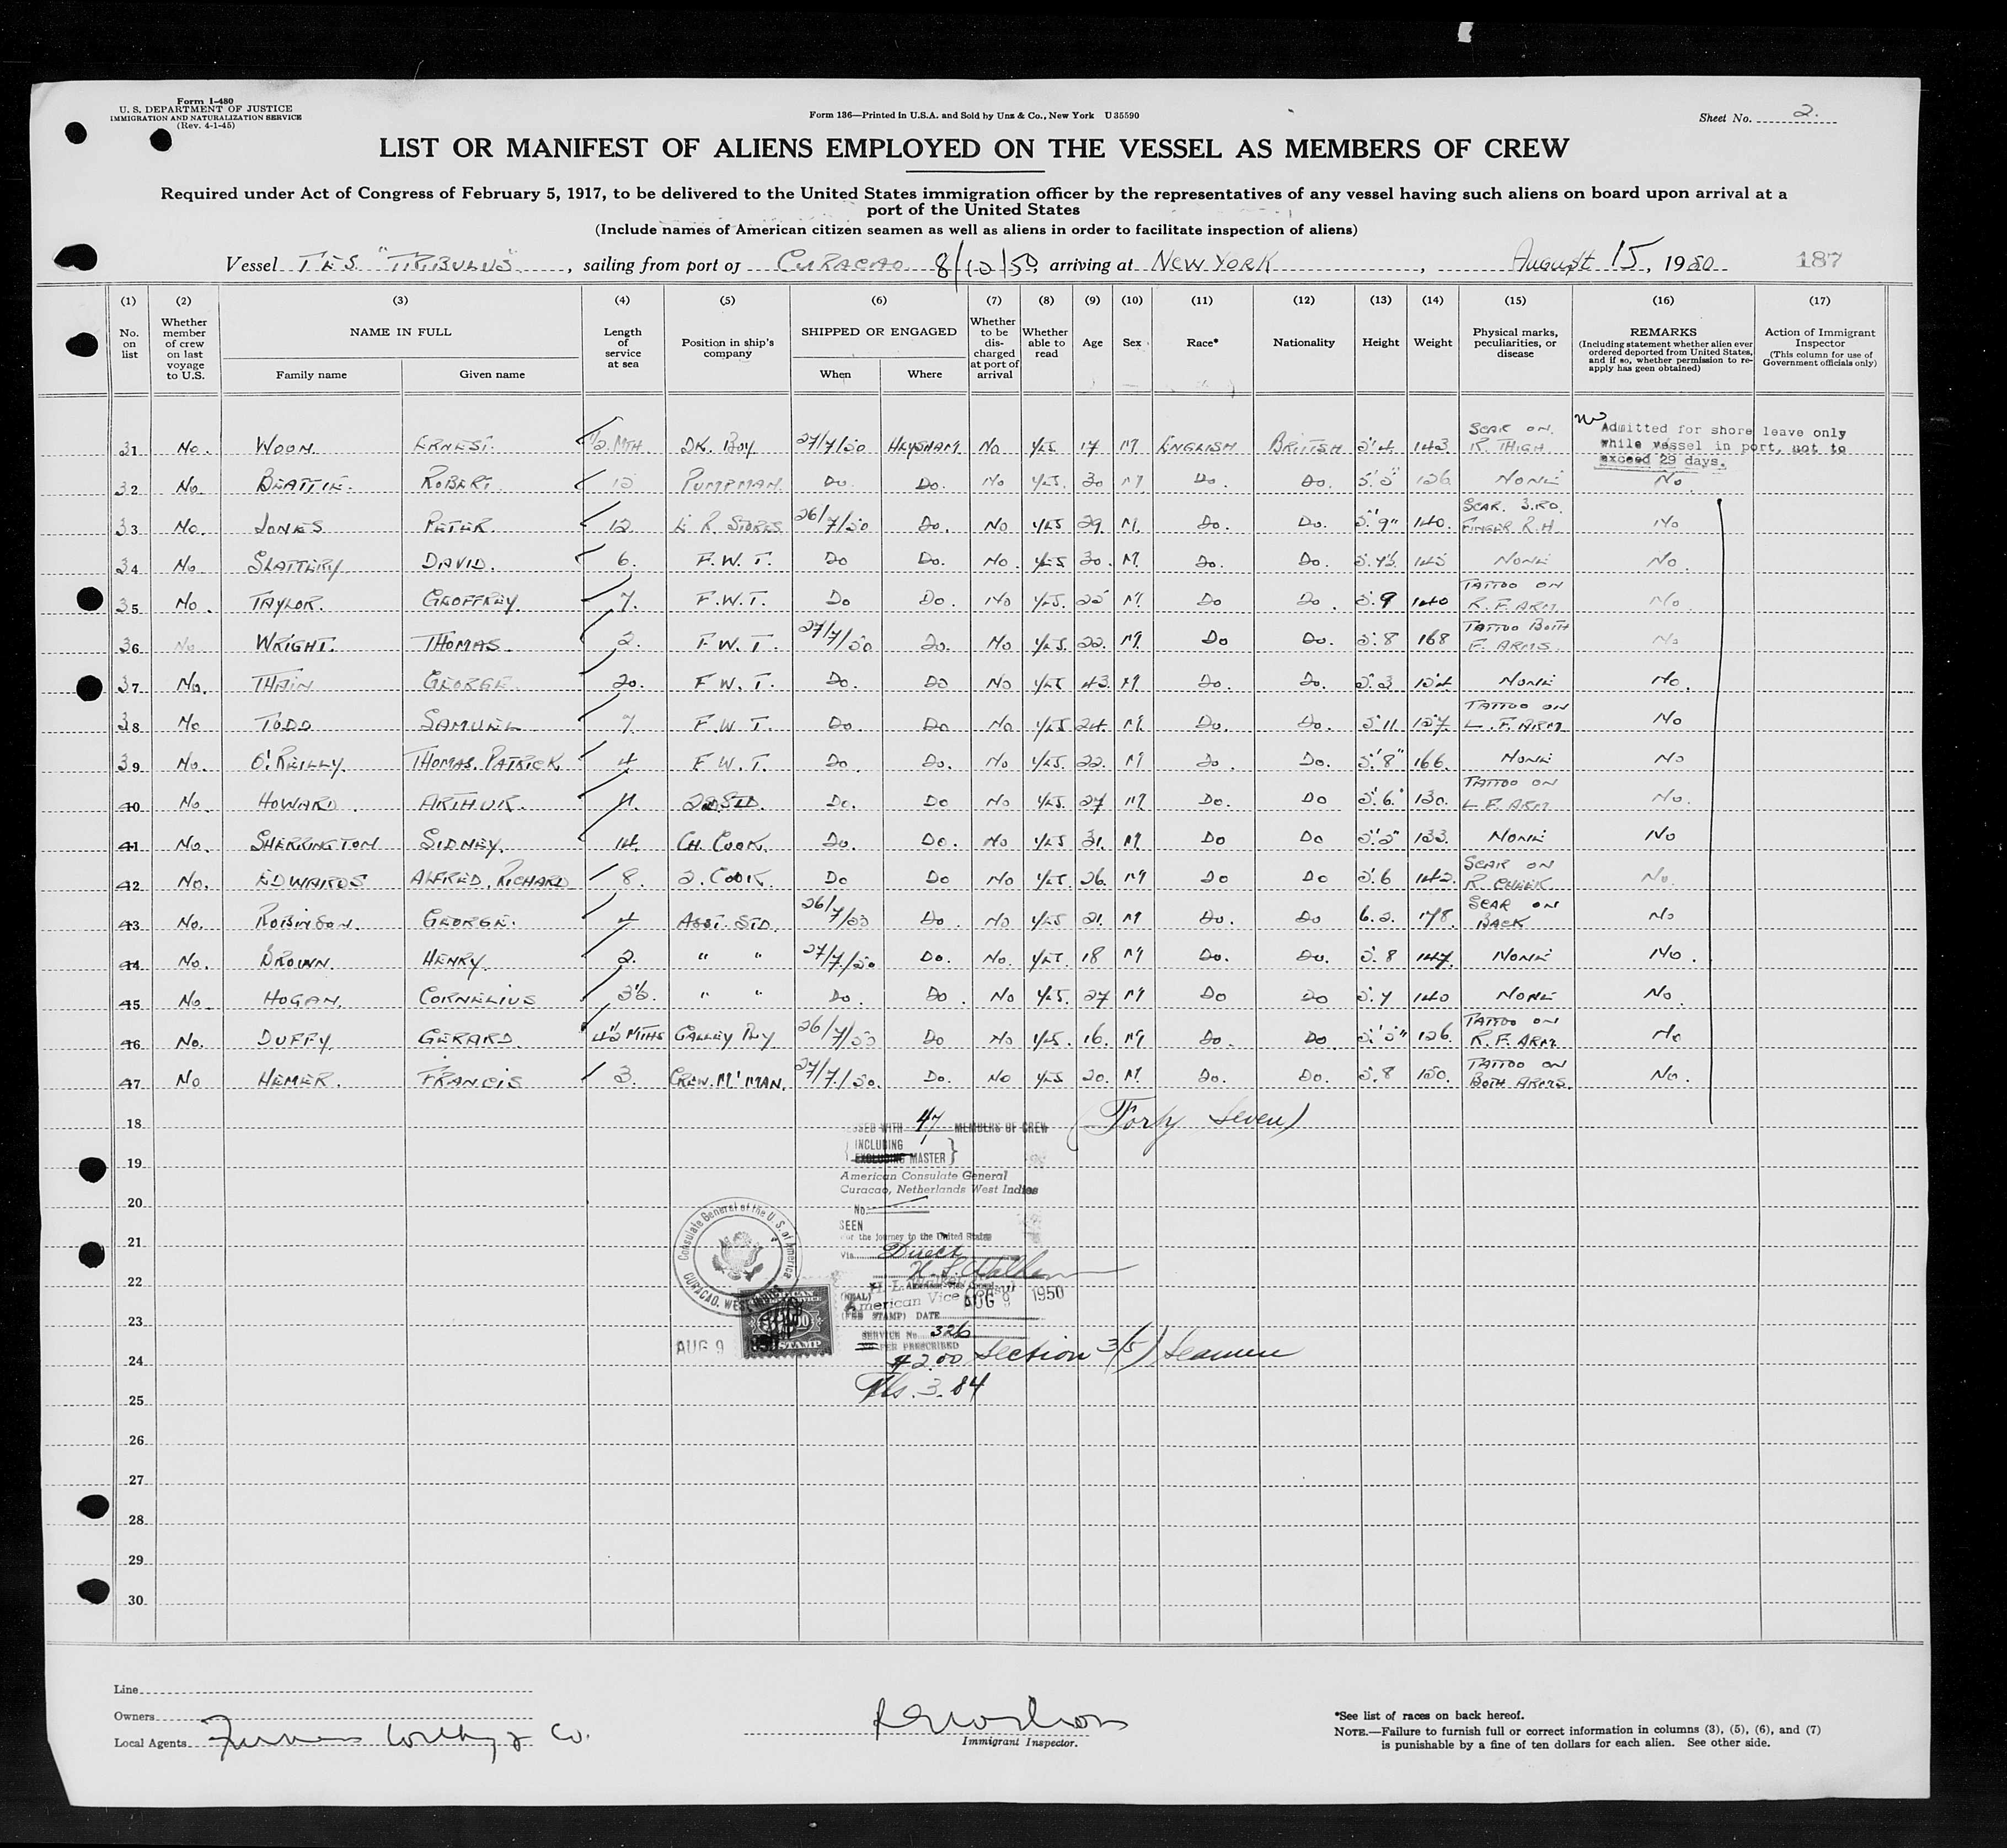 Form I-480
U. S. DEPARTMENT OF JUSTICE
IMMIGRATION AND NATURALIZATION SERVICE
(Rev. 4-1-45)
Form 136—Printed in U.S.A. and Sold by Unz & Co., New York U 35590
Sheet No. 2.
LIST OR MANIFEST OF ALIENS EMPLOYED ON THE VESSEL AS MEMBERS OF CREW
Required under Act of Congress of February 5, 1917, to be delivered to the United States immigration officer by the representatives of any vessel having such aliens on board upon arrival at a
port of the United States
(Include names of American citizen seamen as well as aliens in order to facilitate inspection of aliens)
Vessel T.E.S. "TRIBULUS", sailing from port of CURACAO 8/10/50, arriving at NEW YORK, August 15, 1950 187
(1) No. on list
(2) Whether member of crew on last voyage to U.S.
(3) NAME IN FULL Family name Given name
(4) Length of service at sea
(5) Position in ship's company
(6) SHIPPED OR ENGAGED When Where
(7) Whether to be discharged at port of arrival
(8) Whether able to read
(9) Age
(10) Sex
(11) Race*
(12) Nationality
(13) Height
(14) Weight
(15) Physical marks, peculiarities, or disease
(16) REMARKS (Including statement whether alien ever ordered deported from United States, and if so, whether permission to re-apply has geen obtained)
(17) Action of Immigrant Inspector (This column for use of Government officials only)
Admitted for shore leave only
while vessel in port, not to
exceed 29 days.
31 No. WOON. ERNEST. 1/2 MTH DK. BOY 27/7/50 HEYSHAM No YES 17 M ENGLISH BRITISH 5'4 143 SCAR ON R. THIGH
32 No BEATTIE. ROBERT. PUMPMAN Do. Do. No YES. 30 M Do. Do. 5'5" 126 NONE No.
33 No. JONES PETER 12. E. R. STORES 26/7/50 Do. No YES 29 M. Do. Do. 5'9" 140. SCAR. 3.RD. FINGER R.H No
34 No SLATTERY DAVID. 6. F.W.T. Do Do. No. YES 30. M. Do. Do. 145 NONE No.
35 No. TAYLOR. GEOFFREY. 7. F.W.T. Do Do. No YES. 25 M. Do Do. 5.9 140 TATTOO ON R. F. ARM. No.
36 No WRIGHT. THOMAS. 2. F.W.T. 27/7/50 Do. No YES. 22. M. Do Do. 5.8 168 TATTOO BOTH F. ARMS. No
37 No. THAIN GEORGE. 20. F.W.T. Do. Do No YES 43. M. Do. Do. 5.3 124 NONE No.
38 No TODD SAMUEL 7. F.W.T. Do. Do No YES 24. M. Do. Do. 5.11. 157. TATTOO ON L. F. ARM No
39 No. O'REILLY. THOMAS. PATRICK. 4 F.W.T. Do. Do. No YES 22. M Do. Do. 5'8" 166. NONE No
40 No. HOWARD. ARTHUR. 11. 2D STD. Do. Do No YES. 27 M. Do. Do 5'6. 130. TATTOO ON L F. ARM No.
41 No. SHERRINGTON SIDNEY. 14. CH. COOK. Do. Do. No YES 31. M. Do Do 5'5" 133. NONE No
42 No. EDWARDS ALFRED. RICHARD 8. 2. COOK. Do Do No YES. 26. M Do Do 5'6 142. SCAR ON R. CHEEK No.
43 No. ROBINSON. GEORGE. 4 ASST. STD. 26/7/50 Do. No YES 21. M Do. Do 6.2. 178. SCAR ON BACK No
44 No. BROWN. HENRY. 2. " " 27/7/50 Do. No. YES 18 M Do. Do. 5.8 147. NONE No.
45 No. HOGAN. CORNELIUS 3½. " " Do. Do. No YES. 27 M Do Do 5.7 140 NONE No.
46 No. DUFFY. GERARD. 4½ MTHS GALLEY BOY 26/7/50 Do No YES. 16. M Do. Do 5'5" 126. TATTOO ON R. F. ARM No
47 No HEMER. FRANCIS 3. CREW. M'MAN. 27/7/50. Do. No YES 20. M. Do. Do. 5.8 150. TATTOO ON BOTH ARMS. No.
18
SSED WITH 47 MEMBERS OF CREW (Forty Seven)
INCLUDING
EXCLUDING MASTER
19
American Consulate General
Curacao, Netherlands West Indies
20
No.
SEEN
21
For the journey to the United States
Via Direct
Consulate General of the U. S. of America
CURACAO, WEST INDIES
22
American Vice Consul
(SEAL)
AUG 9 1950
(FEE STAMP) DATE
23
SERVICE No. 326
AUG 9
STAMP
PER PRESCRIBED
24
$2.00 Section 3(5) Seamen
Fls. 3.84
25
26
27
28
29
30
Line
Owners
Local Agents Furness Withy & Co.
Immigrant Inspector.
*See list of races on back hereof.
NOTE.—Failure to furnish full or correct information in columns (3), (5), (6), and (7)
is punishable by a fine of ten dollars for each alien. See other side.